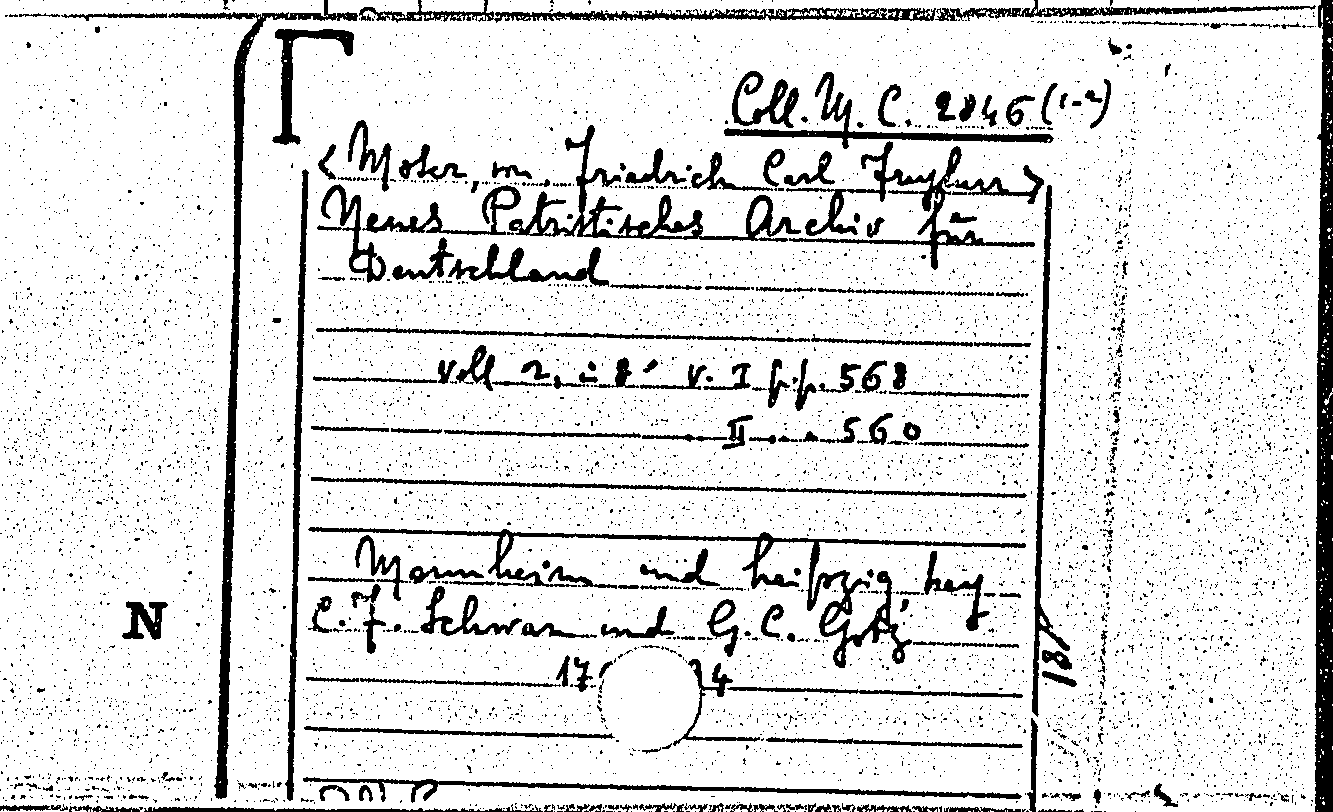 Coll. M. C. 2846 (1-2)
<Moser, von, Friedrich Carl Freyherr>
Neues Patriotisches Archiv für
Deutschland
voll 2, in 8° v. I pp. 568
II 560
Mannheim und Leipzig, bey
C. F. Schwan und G. C. Götz
N
181